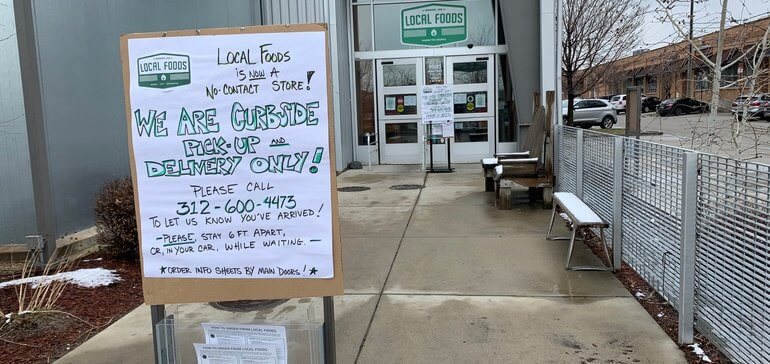 LOCAL FOODS
LOCAL FOODS
IS NOW A
NO-CONTACT STORE!
WE ARE CURBSIDE
PICK-UP AND
DELIVERY ONLY!
PLEASE CALL
312-600-4473
TO LET US KNOW YOU'VE ARRIVED!
-PLEASE, STAY 6 FT. APART,
OR, IN YOUR CAR, WHILE WAITING.-
*ORDER INFO SHEETS BY MAIN DOORS!*
HOW TO ORDER FROM LOCAL FOODS
HOW TO ORDER FROM LOCAL FOODS
LOCAL FOODS